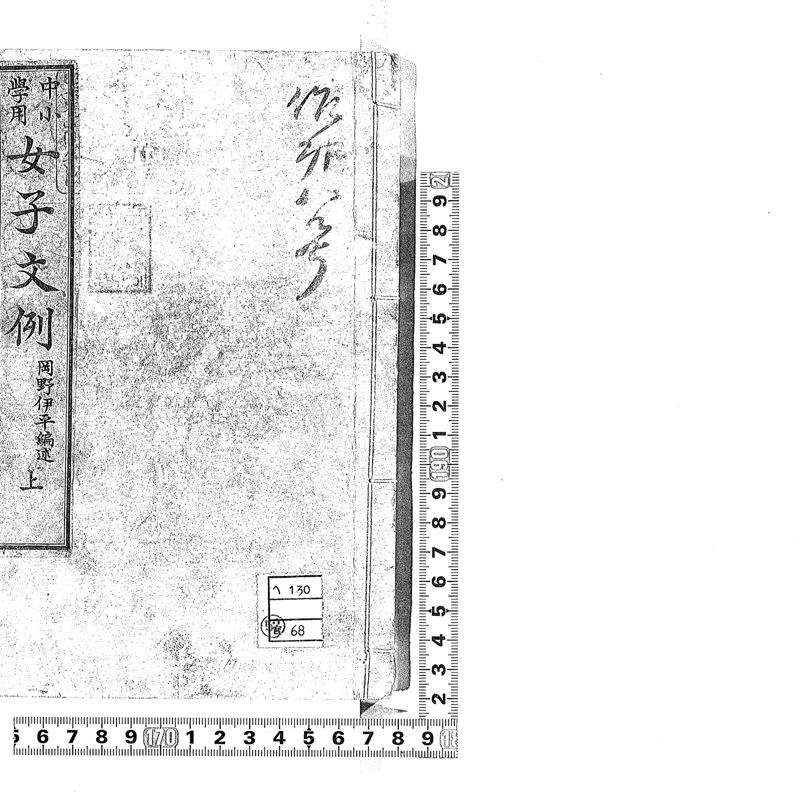 作第八号
中小
學用
女子文例
岡野伊平編述
上
ヘ 130
68
2
9
8
7
6
5
4
3
2
1
190
9
8
7
6
5
4
3
2
5 6 7 8 9 170 1 2 3 4 5 6 7 8 9